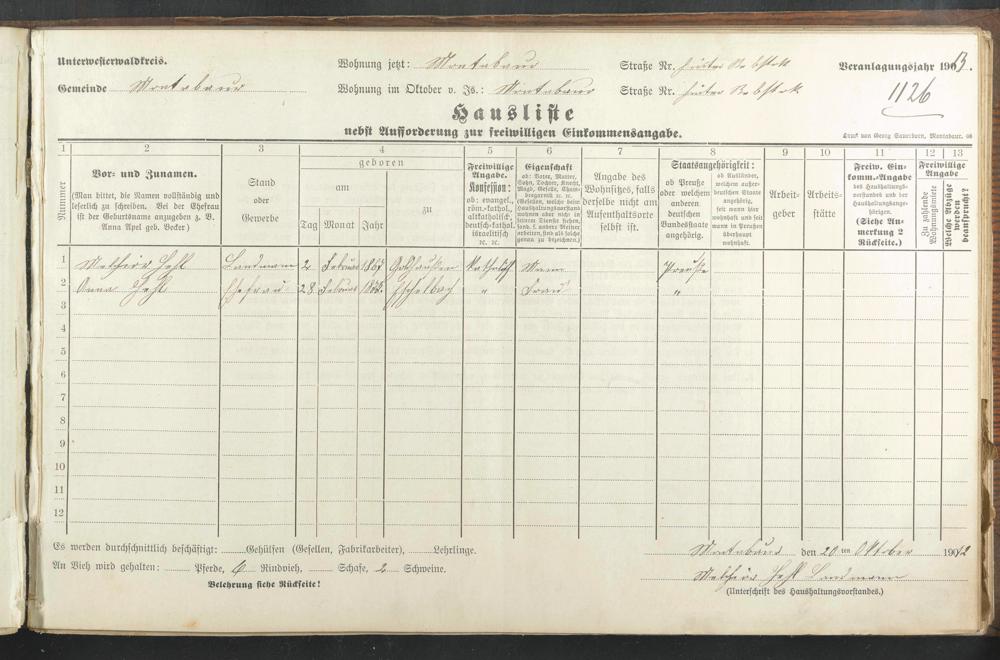 Unterwesterwaldkreis. Wohnung jetzt: Montabaur Straße Nr. hinter Rebstock Veranlagungsjahr 1903.
Gemeinde Montabaur Wohnung im Oktober v. Js.: Montabaur Straße Nr. hinter Rebstock
1126
Hausliste
nebst Aufforderung zur freiwilligen Einkommensangabe.
Druck von Georg Sauerborn, Montabaur.
1 2 3 4 5 6 7 8 9 10 11 12 13
Nummer
Vor- und Zunamen.
(Man bittet, die Namen vollständig und
leserlich zu schreiben. Bei der Ehefrau
ist der Geburtsname anzugeben z. B.
Anna Apel geb. Becker)
Stand
oder
Gewerbe
geboren
am
Tag Monat Jahr
zu
Freiwillige
Angabe.
Konfession:
ob: evangel.,
röm.-kathol.,
altkatholisch,
deutsch-kathol.
israelitisch
ꝛc. ꝛc.
Eigenschaft
ob: Vater, Mutter,
Sohn, Tochter, Knecht,
Magd, Geselle, Cham-
bregarnist ꝛc. ꝛc.
(Gesellen, welche beim
Haushaltungsvorstand
wohnen aber nicht in
seinem Dienste stehen,
sond. f. andere Meister
arbeiten, sind als solche
genau zu bezeichnen.)
Angabe des
Wohnsitzes, falls
derselbe nicht am
Aufenthaltsorte
selbst ist.
Staatsangehörigkeit:
ob Preuße
oder welchem
anderen
deutschen
Bundesstaate
angehörig.
ob Ausländer,
welchem außer-
deutschen Staate
angehörig,
seit wann hier
wohnhaft und seit
wann in Preußen
überhaupt
wohnhaft.
Arbeit-
geber
Arbeits-
stätte
Freiw. Ein-
komm.-Angabe
des Haushaltungs-
vorstandes und der
Haushaltungsange-
hörigen.
(Siehe An-
merkung 2
Rückseite.)
Freiwillige
Angabe
Zu zahlende
Wohnungsmiete
Welche Abzüge
werden
beansprucht?
1 Melchior Hehl Landmann 2 Februar 1867 Katholisch Mann Preuße
2 Anna Hehl Ehefrau 28 Februar Eschelbach " Frau "
3
4
5
6
7
8
9
10
11
12
Es werden durchschnittlich beschäftigt: Gehülfen (Gesellen, Fabrikarbeiter), Lehrlinge.
Montabaur den 20 ten Oktober 1902
An Vieh wird gehalten: Pferde, 6 Rindvieh, Schafe, 2 Schweine.
Melchior Hehl Landmann
Belehrung siehe Rückseite!
(Unterschrift des Haushaltungsvorstandes.)